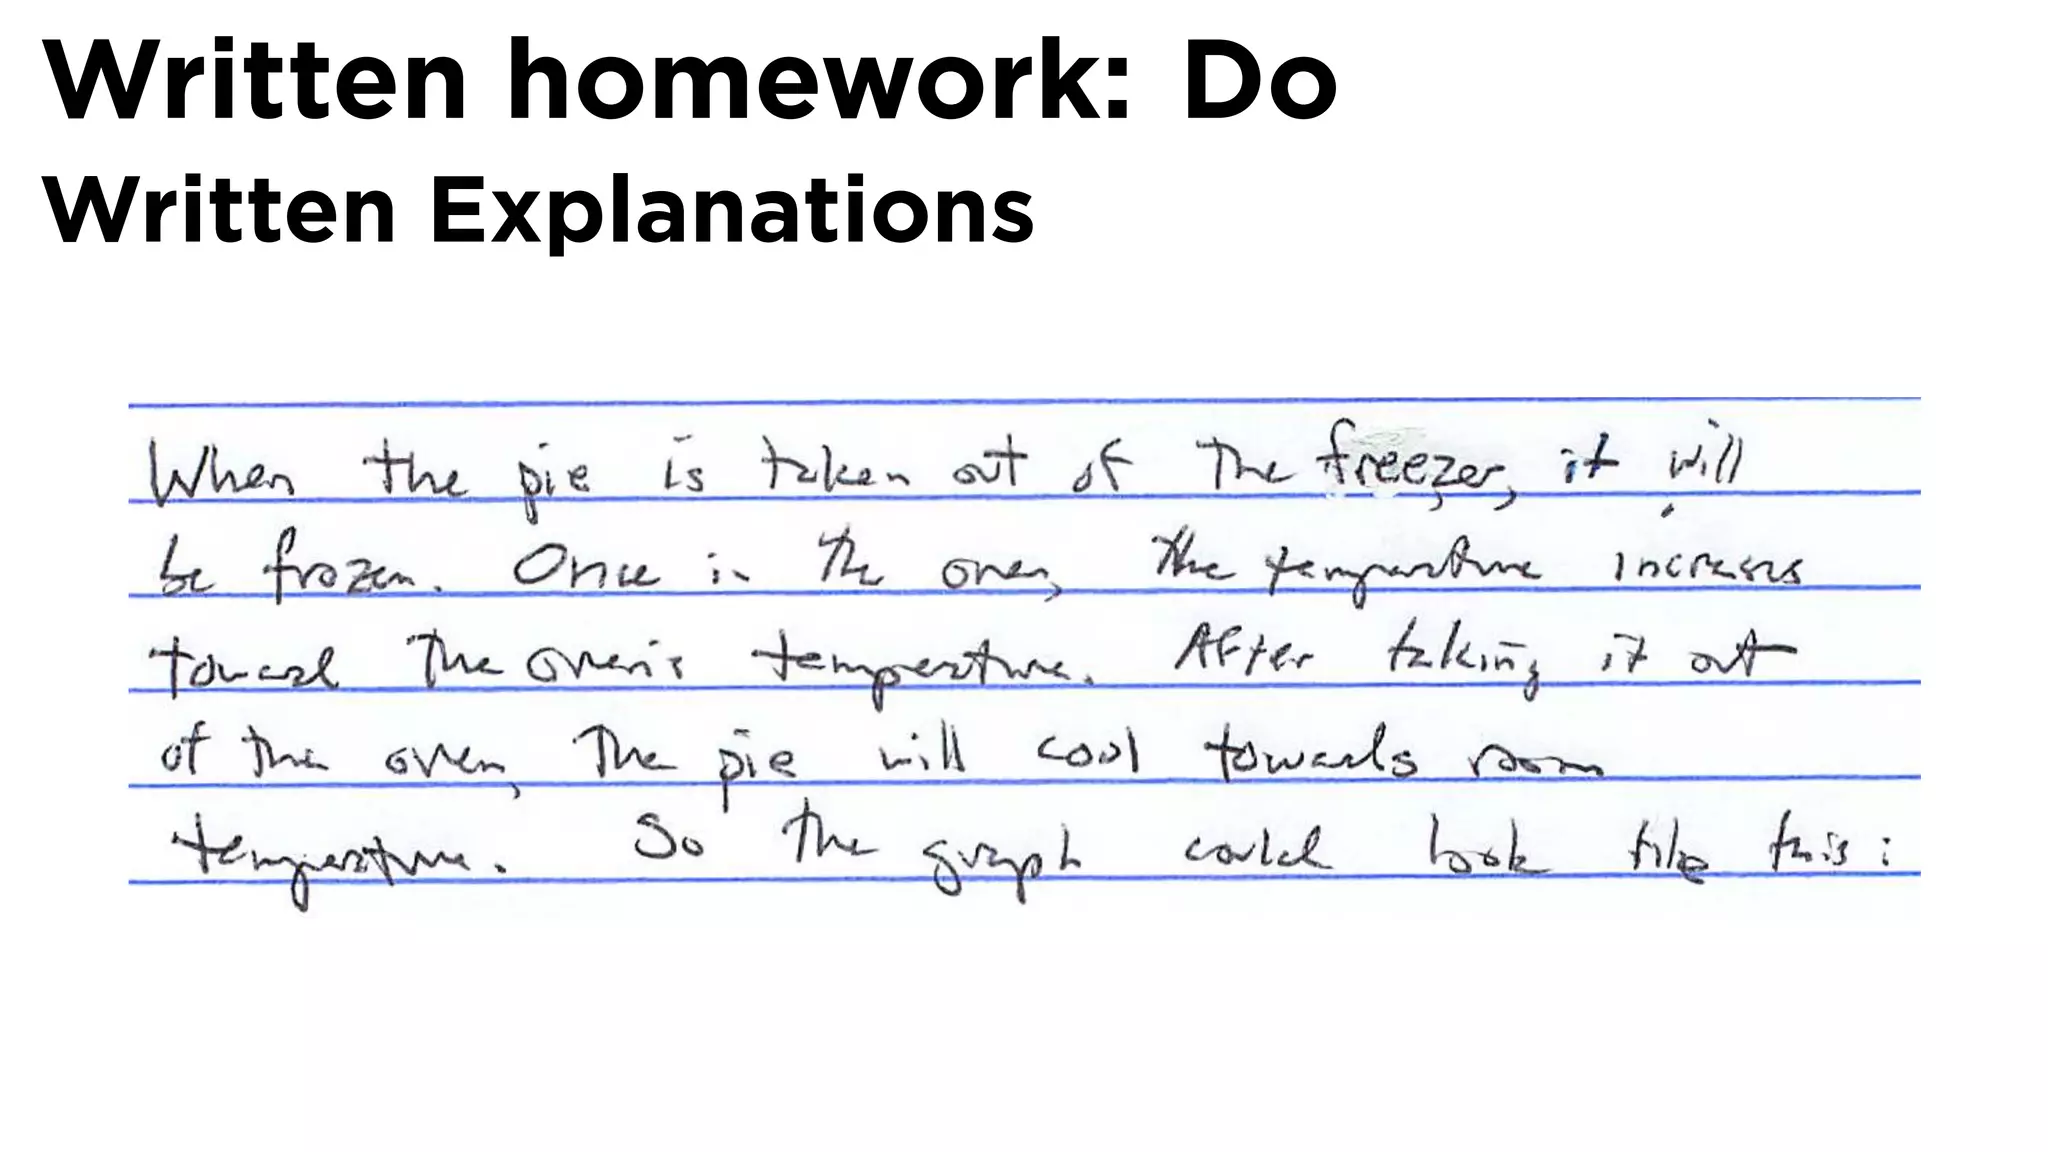 Written homework: Do
Written Explanations
When the pie is taken out of the freezer, it will
be frozen. Once in the oven, the temperature increases
toward the oven's temperature. After taking it out
of the oven, the pie will cool towards room
temperature. So the graph could look like this: